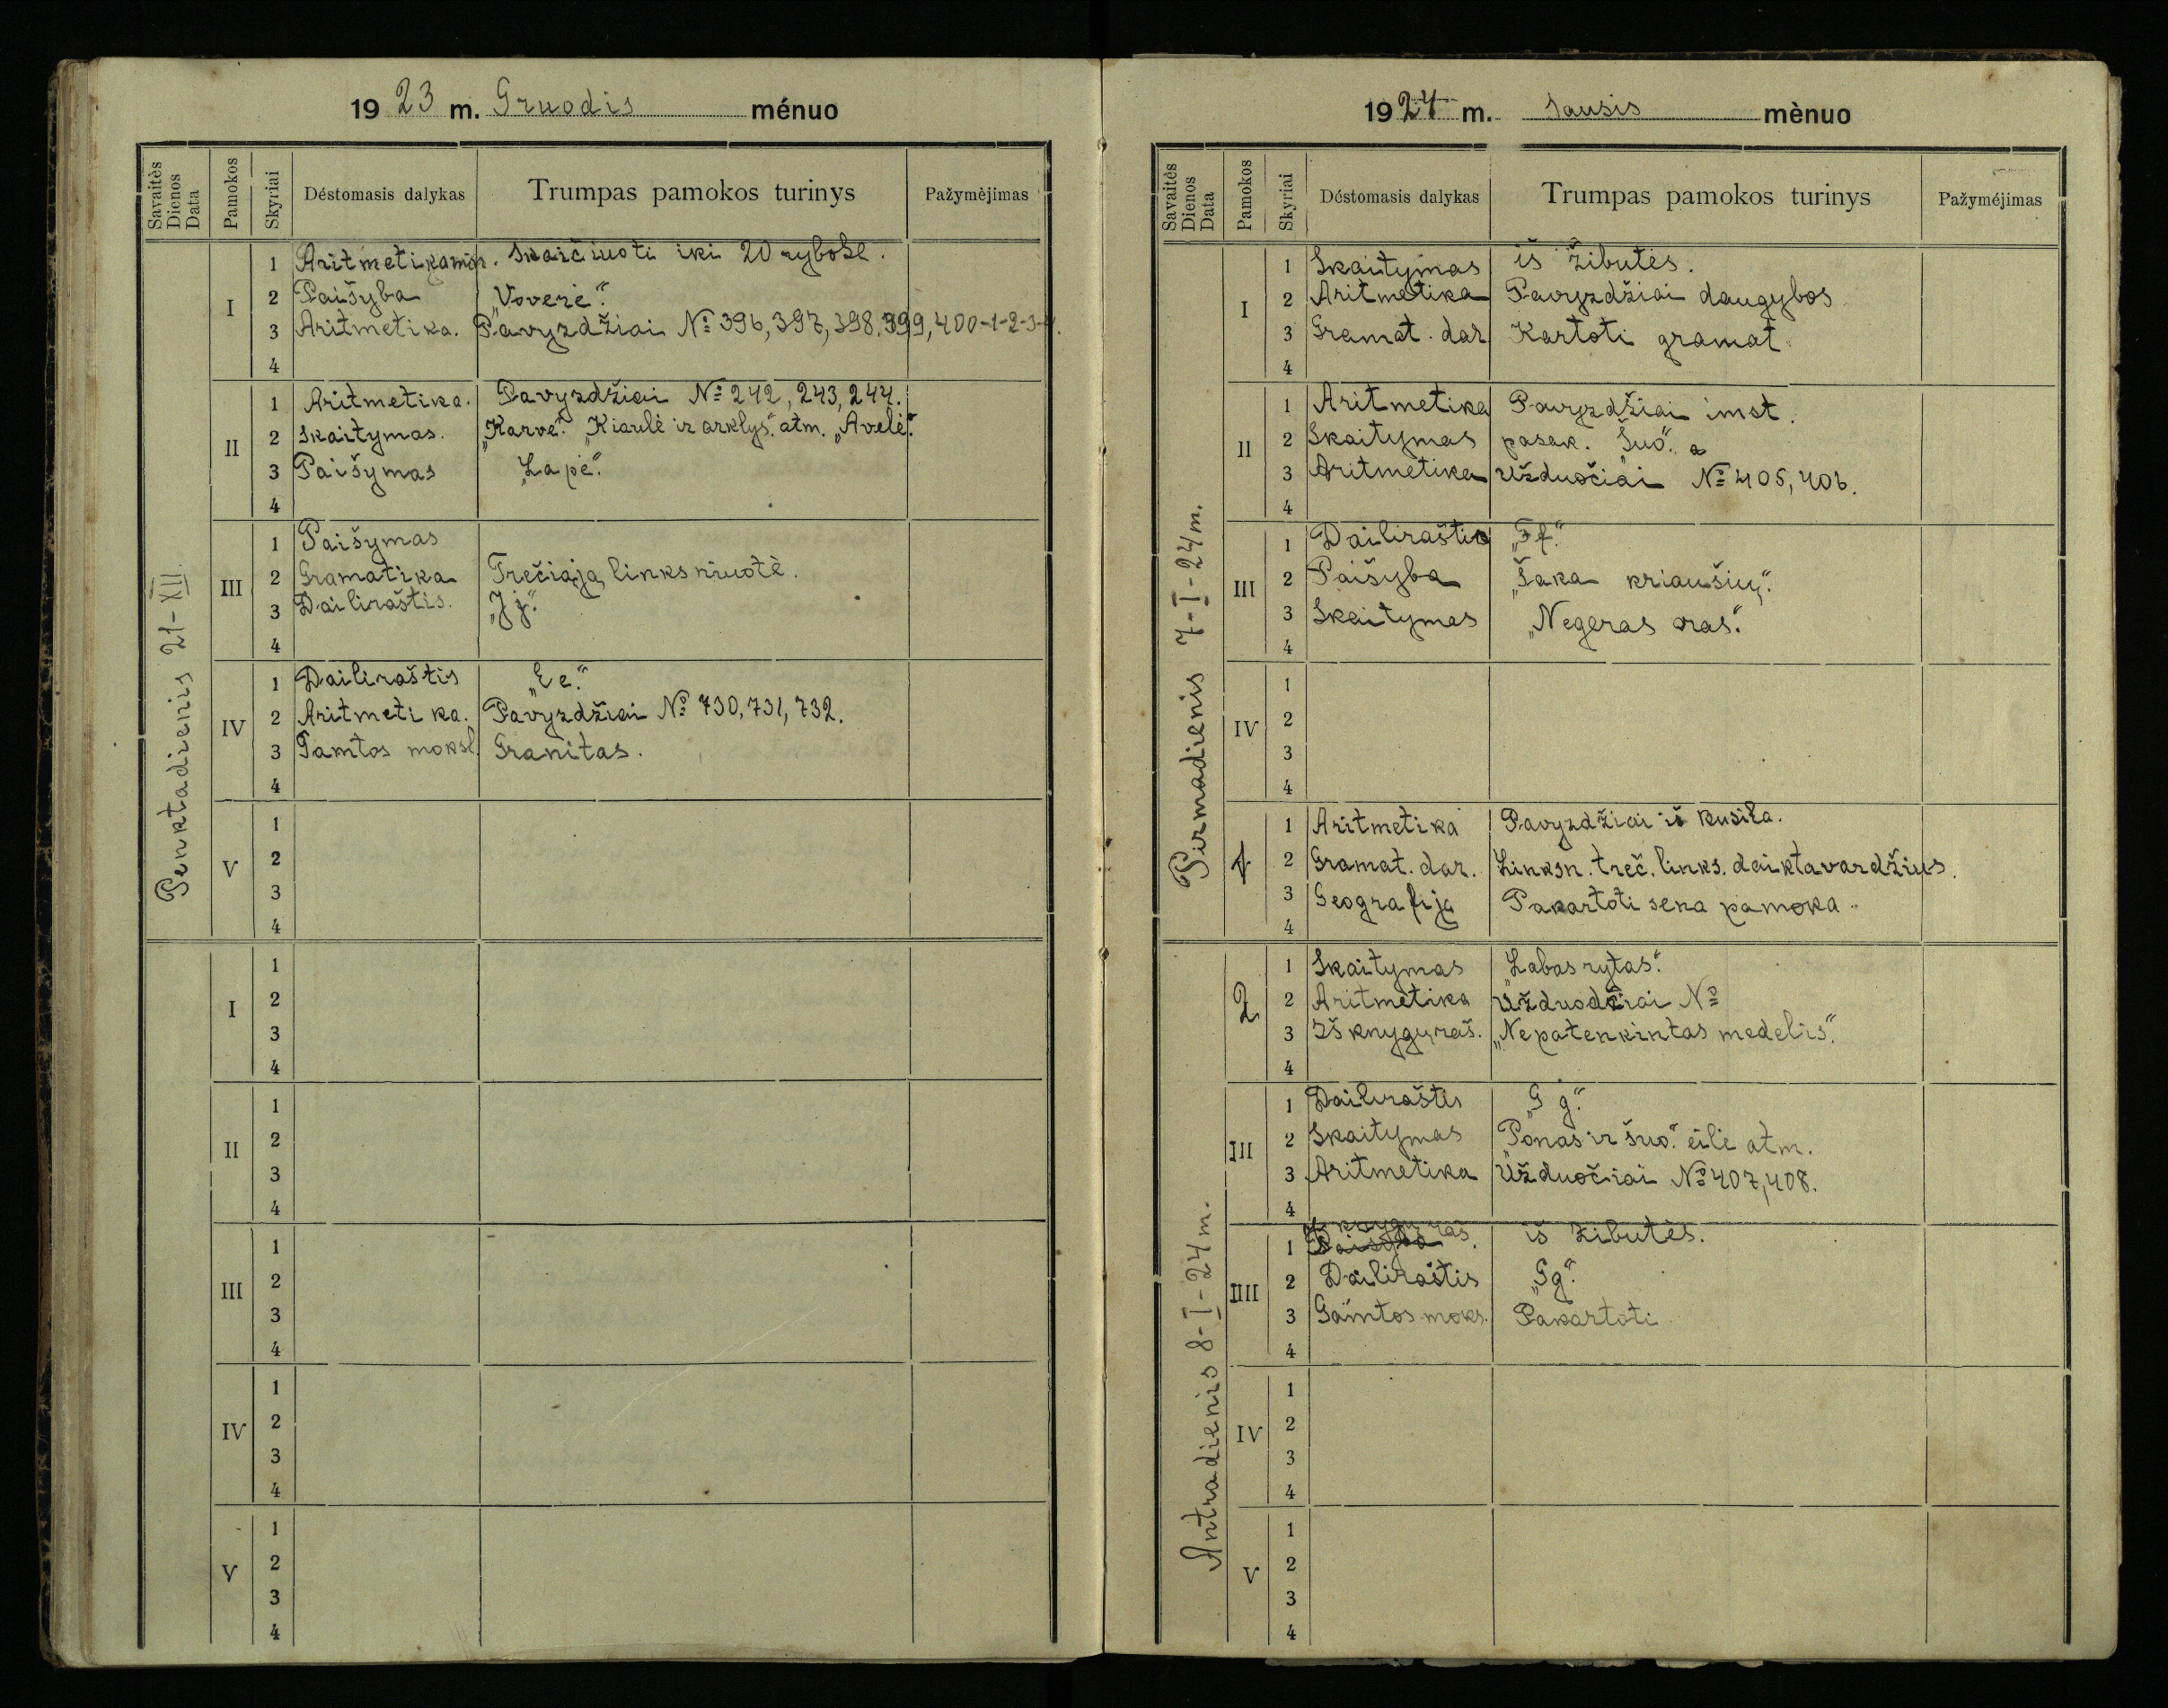 19 23 m. Gruodis ménuo
Savaitės Dienos Data Pamokos Skyriai Déstomasis dalykas Trumpas pamokos turinys Pažymėjimas
Penktadienis 21-XII
I
1 Aritmetika Skaičiuoti iki 20 rybose.
2 Paišyba „Voverė“.
3 Aritmetika. Pavyzdžiai № 396, 397, 398. 399, 400-1-2-3-4.
4
II
1 Aritmetika. Pavyzdžiai № 242, 243, 244.
2 Skaitymas. „Karvė“. „Kiaulė ir arklys“. atm. „Avelė“.
3 Paišymas „Lapė“.
4
III
1 Paišymas
2 Gramatika Trečiąją linksniuotė.
3 Dailiraštis. „Jj“.
4
IV
1 Dailiraštis „Ee“.
2 Aritmetika. Pavyzdžiai № 730, 731, 732.
3 Gamtos moksl. Granitas.
4
V
1
2
3
4
I
1
2
3
4
II
1
2
3
4
III
1
2
3
4
IV
1
2
3
4
V
1
2
3
4
19 24 m. Sausis mėnuo
Savaitės Dienos Data Pamokos Skyriai Déstomasis dalykas Trumpas pamokos turinys Pažyméjimas
Pirmadienis 7-I-24 m.
I
1 Skaitymas iš Žibutės.
2 Aritmetika Pavyzdžiai daugybos
3 Gramat. dar. Kartoti gramat.
4
II
1 Aritmetika Pavyzdžiai imst.
2 Skaitymas pasak. „Šuo“.
3 Aritmetika Užduočiai № 405, 406.
4
III
1 Dailiraštis „Ff“.
2 Paišyba „Šaka kriaušių“.
3 Skaitymas „Negeras oras“.
4
IV
1
2
3
4
1
1 Aritmetika Pavyzdžiai iš Busila.
2 Gramat. dar. Linksn. treč. links. daiktavardžius.
3 Geografija Pakartoti sena pamoka.
4
Antradienis 8-I-24 m.
2
1 Skaitymas „Labas rytas“.
2 Aritmetika Užduočiai №
3 Iš knygų raš. „Nepatenkintas medelis“.
4
III
1 Dailiraštis „G g“.
2 Skaitymas „Ponas ir šuo“. eilė atm.
3 Aritmetika Užduočiai № 407, 408.
4
IIII
1 Iš knygų raš. iš Žibutės.
2 Dailiraštis „Gg“.
3 Gamtos moks. Pakartoti
4
IV
1
2
3
4
V
1
2
3
4